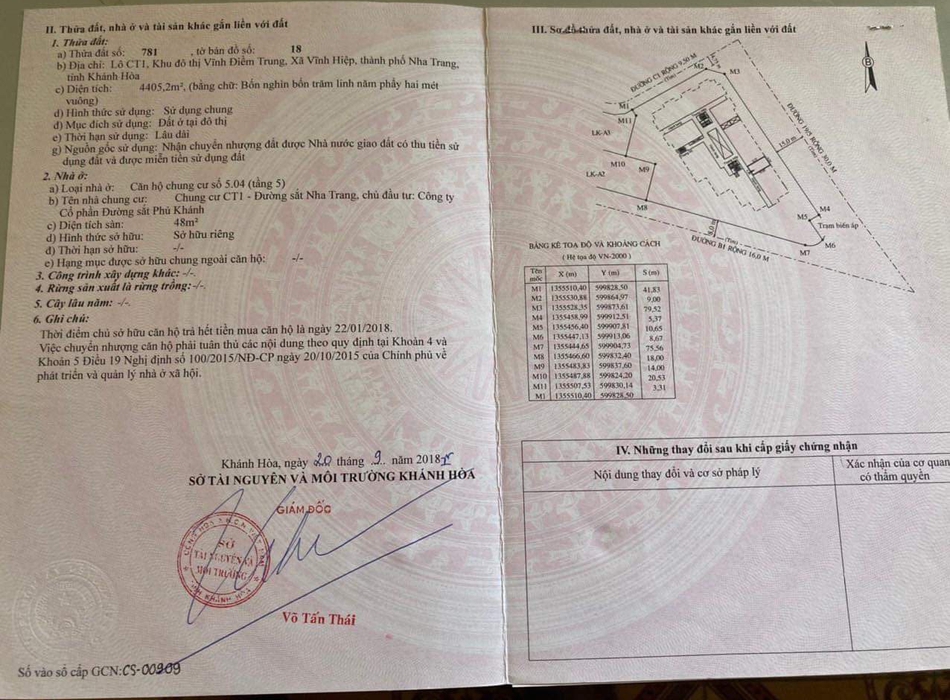 II. Thửa đất, nhà ở và tài sản khác gắn liền với đất
1. Thửa đất:
a) Thửa đất số: 781 , tờ bản đồ số: 18
b) Địa chỉ: Lô CT1, Khu đô thị Vĩnh Điềm Trung, Xã Vĩnh Hiệp, thành phố Nha Trang,
tỉnh Khánh Hòa
c) Diện tích: 4405,2m², (bằng chữ: Bốn nghìn bốn trăm linh năm phẩy hai mét
vuông)
d) Hình thức sử dụng: Sử dụng chung
đ) Mục đích sử dụng: Đất ở tại đô thị
e) Thời hạn sử dụng: Lâu dài
g) Nguồn gốc sử dụng: Nhận chuyển nhượng đất được Nhà nước giao đất có thu tiền sử
dụng đất và được miễn tiền sử dụng đất
2. Nhà ở:
a) Loại nhà ở: Căn hộ chung cư số 5.04 (tầng 5)
b) Tên nhà chung cư: Chung cư CT1 - Đường sắt Nha Trang, chủ đầu tư: Công ty
Cổ phần Đường sắt Phú Khánh
c) Diện tích sàn: 48m²
d) Hình thức sở hữu: Sở hữu riêng
đ) Thời hạn sở hữu: -/-
e) Hạng mục được sở hữu chung ngoài căn hộ: -/-
3. Công trình xây dựng khác: -/-.
4. Rừng sản xuất là rừng trồng:-/-.
5. Cây lâu năm: -/-.
6. Ghi chú:
Thời điểm chủ sở hữu căn hộ trả hết tiền mua căn hộ là ngày 22/01/2018.
Việc chuyển nhượng căn hộ phải tuân thủ các nội dung theo quy định tại Khoản 4 và
Khoản 5 Điều 19 Nghị định số 100/2015/NĐ-CP ngày 20/10/2015 của Chính phủ về
phát triển và quản lý nhà ở xã hội.
Khánh Hòa, ngày 20 tháng 9 năm 2018
SỞ TÀI NGUYÊN VÀ MÔI TRƯỜNG KHÁNH HÒA
GIÁM ĐỐC
SỞ
TÀI NGUYÊN VÀ
MÔI TRƯỜNG
Võ Tấn Thái
Số vào sổ cấp GCN:CS-00909
III. Sơ đồ thửa đất, nhà ở và tài sản khác gắn liền với đất
B
ĐƯỜNG C1 RỘNG 9,50 M
M2
M3
M1
M11
LK-A3
M10
M9
LK-A2
M8
15,0 m
ĐƯỜNG 19/5 RỘNG 30,0 M
M4
M5
Trạm biến áp
M6
M7
ĐƯỜNG B1 RỘNG 16,0 M
BẢNG KÊ TỌA ĐỘ VÀ KHOẢNG CÁCH
( Hệ tọa độ VN-2000 )
Tên mốc X (m) Y (m) S (m)
M1 1355510,40 599828,50
41,83
M2 1355530,88 599864,97
9,00
M3 1355528,35 599873,61
79,52
M4 1355458,99 599912,51
5,37
M5 1355456,40 599907,81
10,65
M6 1355447,13 599913,06
8,67
M7 1355444,65 599904,73
75,56
M8 1355466,60 599832,40
18,00
M9 1355483,83 599837,60
14,00
M10 1355487,88 599824,20
20,53
M11 1355507,53 599830,14
3,31
M1 1355510,40 599828,50
IV. Những thay đổi sau khi cấp giấy chứng nhận
Nội dung thay đổi và cơ sở pháp lý
Xác nhận của cơ quan
có thẩm quyền